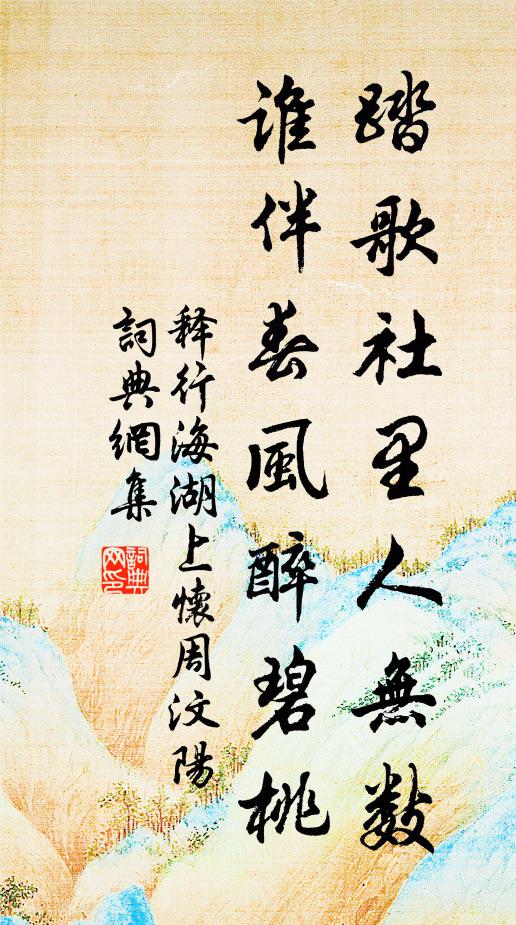 踏歌社里人無數
誰伴春風醉碧桃
释行海湖上懷周汶陽
詞典網集
詞典
网印